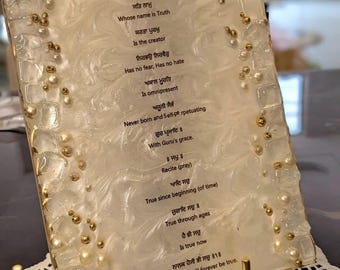 ਸਤਿ ਨਾਮੁ
Whose name is Truth
ਕਰਤਾ ਪੁਰਖੁ
Is the creator
ਨਿਰਭਉ ਨਿਰਵੈਰੁ
Has no fear, Has no hate
ਅਕਾਲ ਮੂਰਤਿ
Is omnipresent
ਅਜੂਨੀ ਸੈਭੰ
Never born and Self-perpetuating.
ਗੁਰ ਪ੍ਰਸਾਦਿ ॥
With Guru's grace.
॥ ਜਪੁ ॥
Recite (pray)
ਆਦਿ ਸਚੁ
True since beginning (of time)
ਜੁਗਾਦਿ ਸਚੁ ॥
True through ages
ਹੈ ਭੀ ਸਚੁ
Is true now
ਨਾਨਕ ਹੋਸੀ ਭੀ ਸਚੁ ॥੧॥
forever be true.